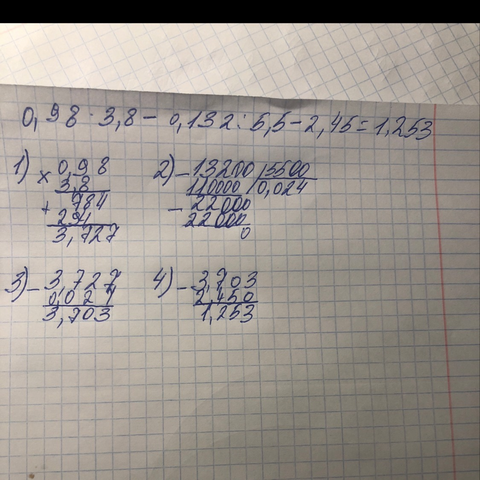 0,98 · 3,8 – 0,132 : 5,5 – 2,45 = 1,253
1) × 0,98
3,8
+ 784
294
3,727
2) – 13200 | 5500
110000 | 0,024
– 22000
22000
0
3) – 3,727
0,024
3,703
4) – 3,703
2,450
1,253